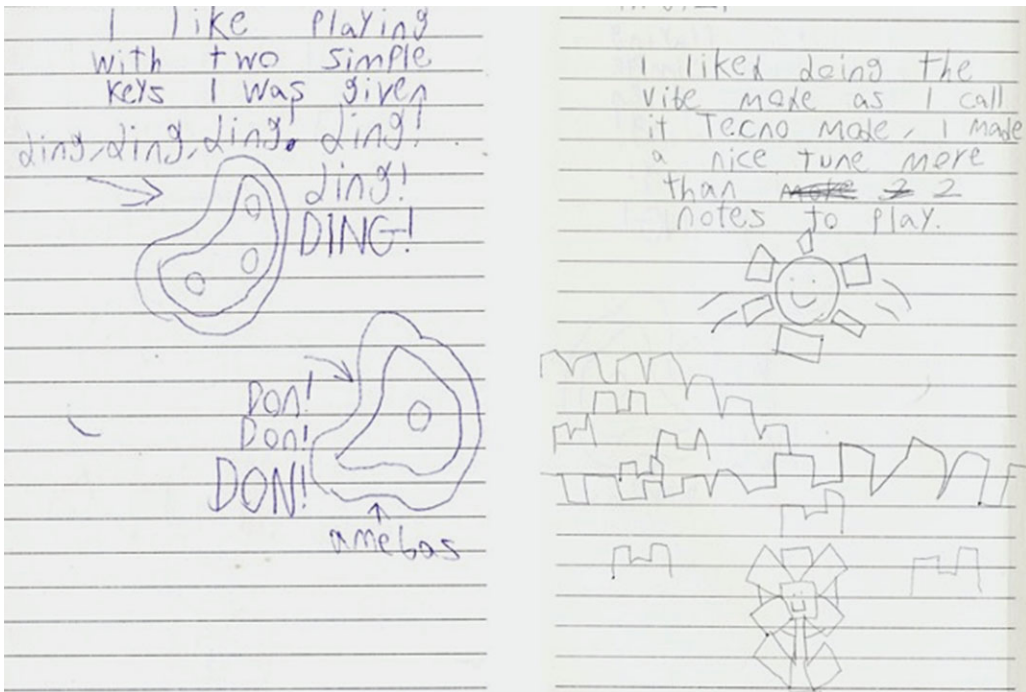 I like playing
with two simple
keys I was given
ding, ding, ding, ding!
ding!
DING!
Don!
Don!
DON!
amebas
I liked doing the
vite mode as I call
it Tecno mode, I made
a nice tune more
than 2
notes to play.